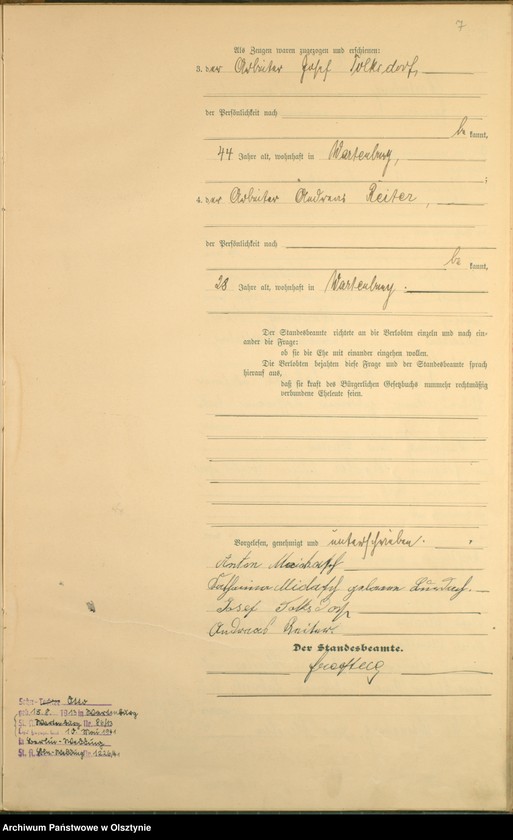 7
Als Zeugen waren zugezogen und erschienen:
3. der Arbeiter Josef Tolksdorf,
der Persönlichkeit nach
be kannt,
44 Jahre alt, wohnhaft in Wartenburg,
;
4. der Arbeiter Andreas Reiter,
der Persönlichkeit nach
be kannt,
28 Jahre alt, wohnhaft in Wartenburg.
Der Standesbeamte richtete an die Verlobten einzeln und nach ein-
ander die Frage:
ob sie die Ehe mit einander eingehen wollen.
Die Verlobten bejahten diese Frage und der Standesbeamte sprach
hierauf aus,
daß sie kraft des Bürgerlichen Gesetzbuchs nunmehr rechtmäßig
verbundene Eheleute seien.
Vorgelesen, genehmigt und unterschrieben.
Anton
Katharina geborene
Josef Tolksdorf
Andreas Reiter
Der Standesbeamte.
Otto
in Wartenburg
Wartenburg Nr.
10. Mai 1941
Berlin-Wedding
Archiwum Państwowe w Olsztynie